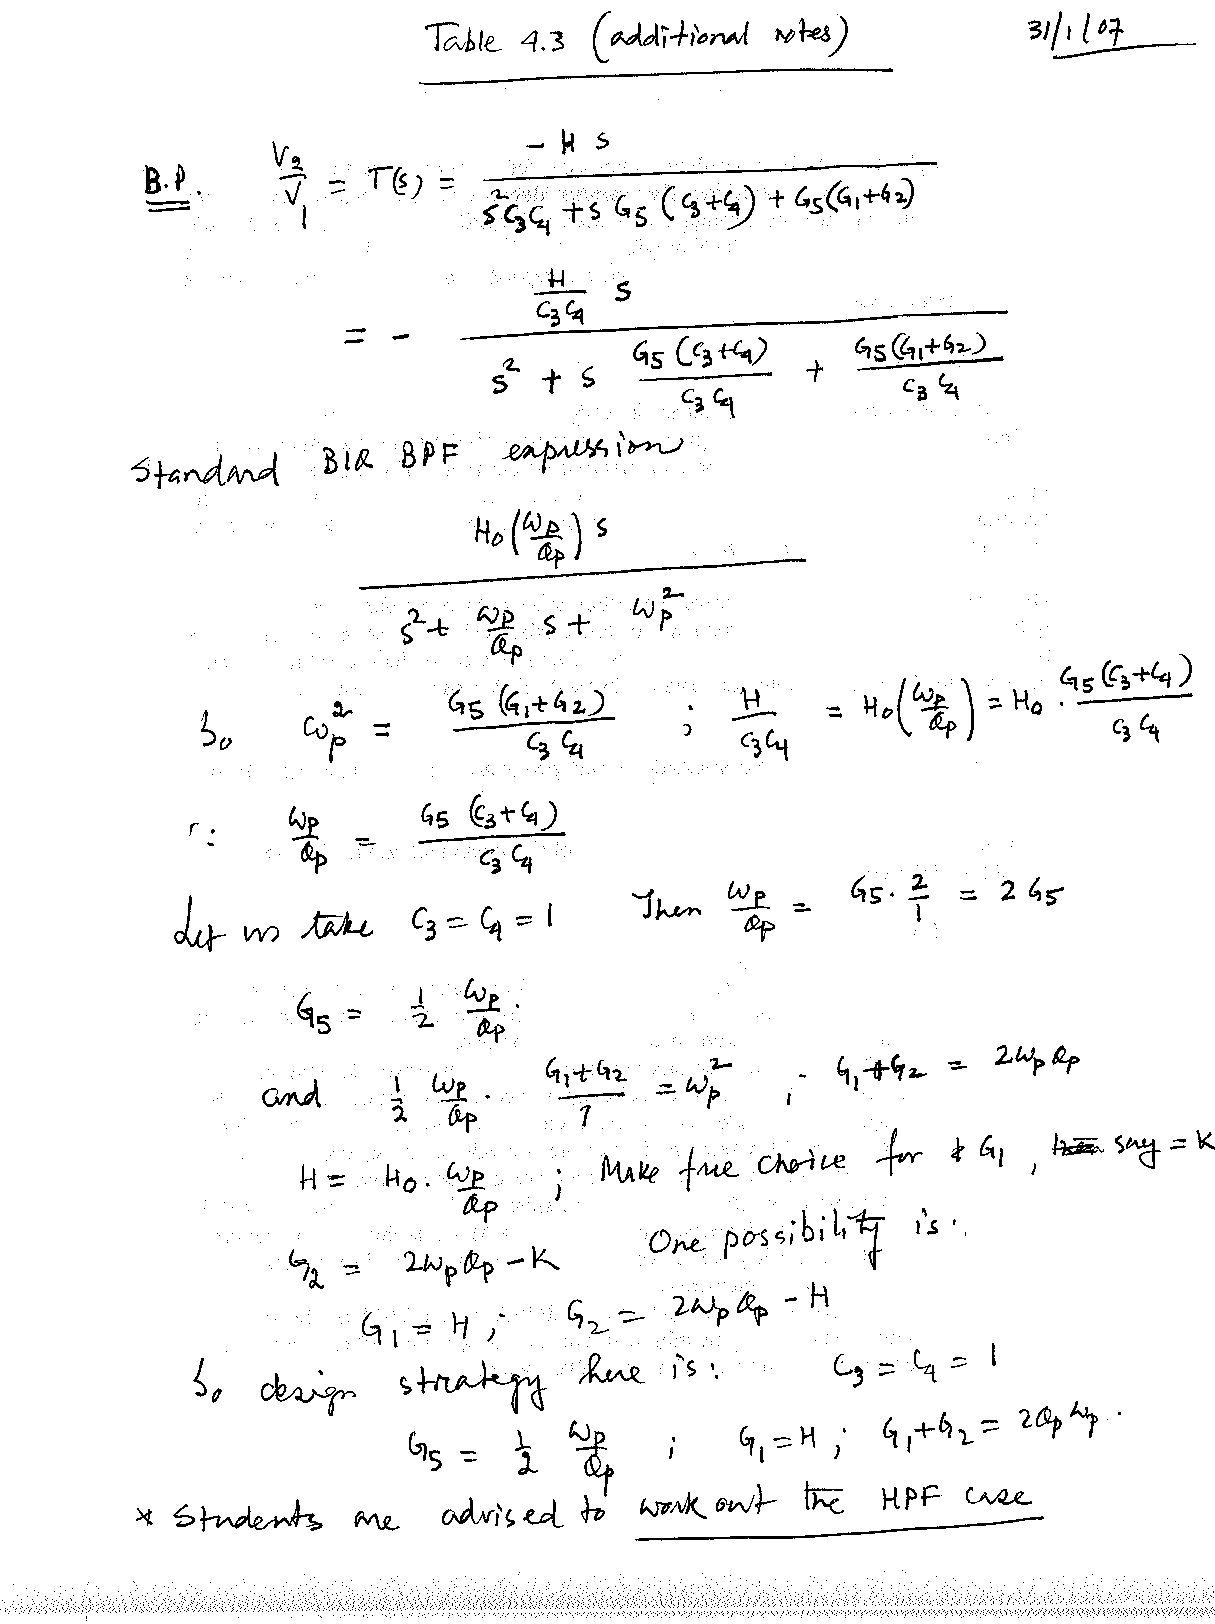 Table 4.3 (additional notes) 31/1/07
B.P. V2/V1 = T(s) = - H s / (s²C3C4 + s G5 (C3+C4) + G5(G1+G2))
= - (H/(C3C4)) s / (s² + s G5(C3+C4)/(C3C4) + G5(G1+G2)/(C3C4))
Standard BIQ BPF expression
H0(ωp/Qp) s / (s² + (ωp/Qp) s + ωp²)
So ωp² = G5(G1+G2)/(C3C4) ; H/(C3C4) = H0(ωp/Qp) = H0 . G5(C3+C4)/(C3C4)
∵ ωp/Qp = G5(C3+C4)/(C3C4)
Let us take C3 = C4 = 1 Then ωp/Qp = G5 . 2/1 = 2G5
G5 = 1/2 ωp/Qp .
and 1/2 ωp/Qp . (G1+G2)/1 = ωp² ; G1+G2 = 2ωpQp
H = H0 . ωp/Qp ; Make free choice for G1, say = K
G2 = 2ωpQp - K One possibility is.
G1 = H ; G2 = 2ωpQp - H
So design strategy here is : C3 = C4 = 1
G5 = 1/2 ωp/Qp ; G1 = H ; G1+G2 = 2Qpωp .
* Students are advised to work out the HPF case